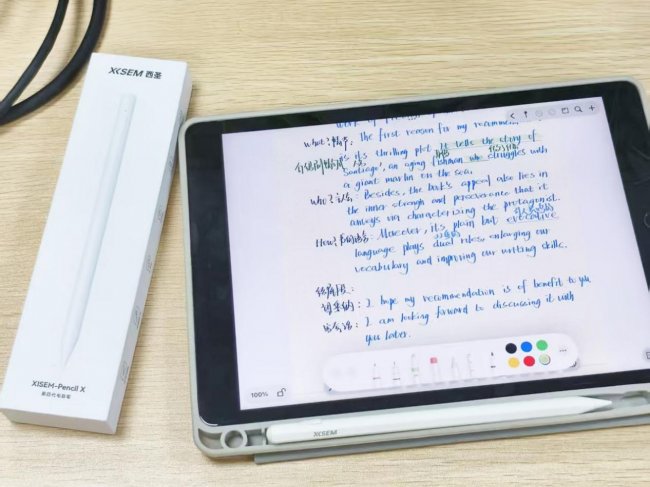 XISEM 西圣
XISEM-Pencil X
What?
The first reason for my recommen
is it's thrilling plot. It tells the story of
Santiago', an aging fishman who struggles with
a giant marlin on the sea.
Who?
: Besides, the book's appeal also lies in
the inner strength and perseverance that it
conveys via characterizing the protagonist.
How?
: Moreover, it's plain but evocative
language plays dual roles, enlarging our
vocabulary and improving our writing skills.
: I hope my recommendation is of benefit to you
: I am looking forward to discussing it with
you later.
100%
XISEM